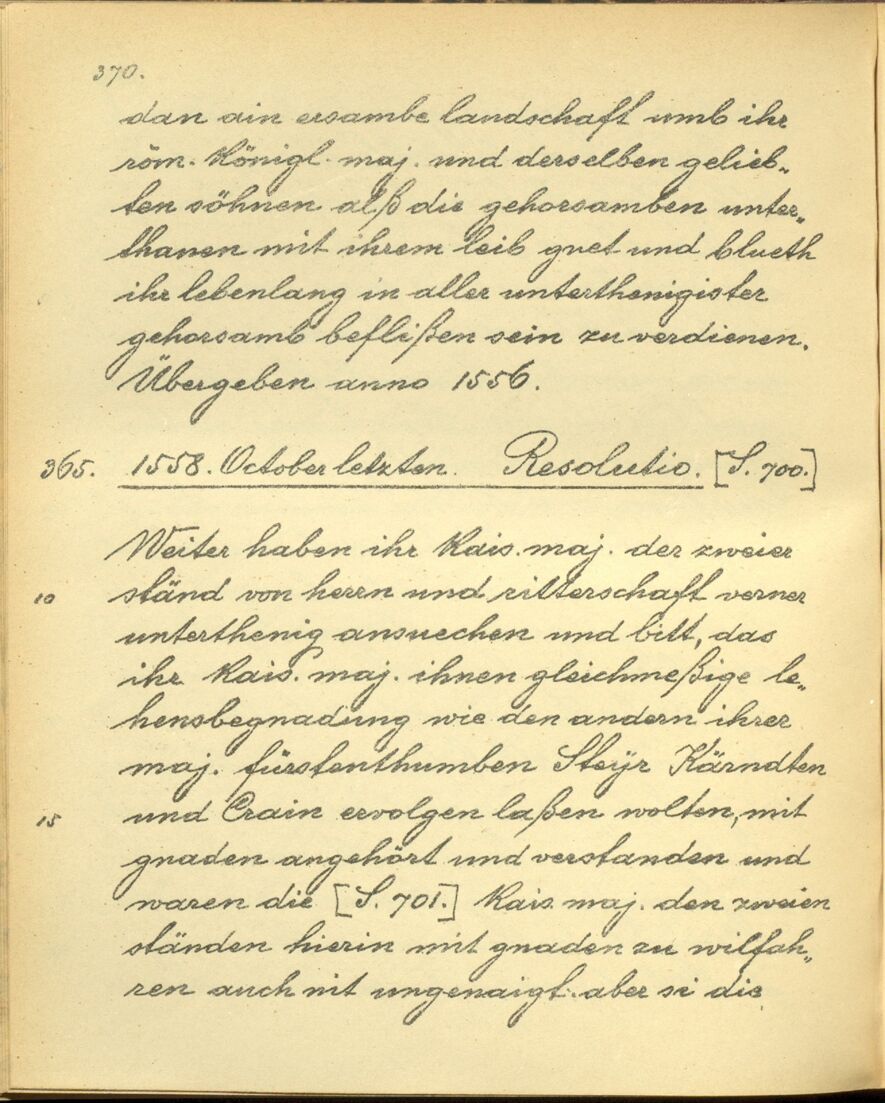 370.
dan ain ersambe landschaft umb ihr
röm. Königl. maj. und derselben gelieb„
ten söhnen alß die gehorsamben unter„
thanen mit ihrem leib guet und blueth
ihr lebenlang in aller unterthenigister
gehorsamb beflißen sein zu verdienen.
Übergeben anno 1556.
365. 1558. October letzten. Resolutio. [S. 700.]
Weiter haben ihr Kais. maj. der zweier
10 ständ von herrn und ritterschaft verner
unterthenig ansuechen und bitt, das
ihr Kais. maj. ihnen gleichmeßige le„
hensbegnadung wie den andern ihrer
maj. fürstenthumben Steÿr Kärndten
15 und Crain ervolgen laßen wolten, mit
gnaden angehört und verstanden und
waren die [S. 701.] Kais. maj. den zweien
ständen hierin mit gnaden zu wilfah„
ren auch nit ungenaigt. aber si die